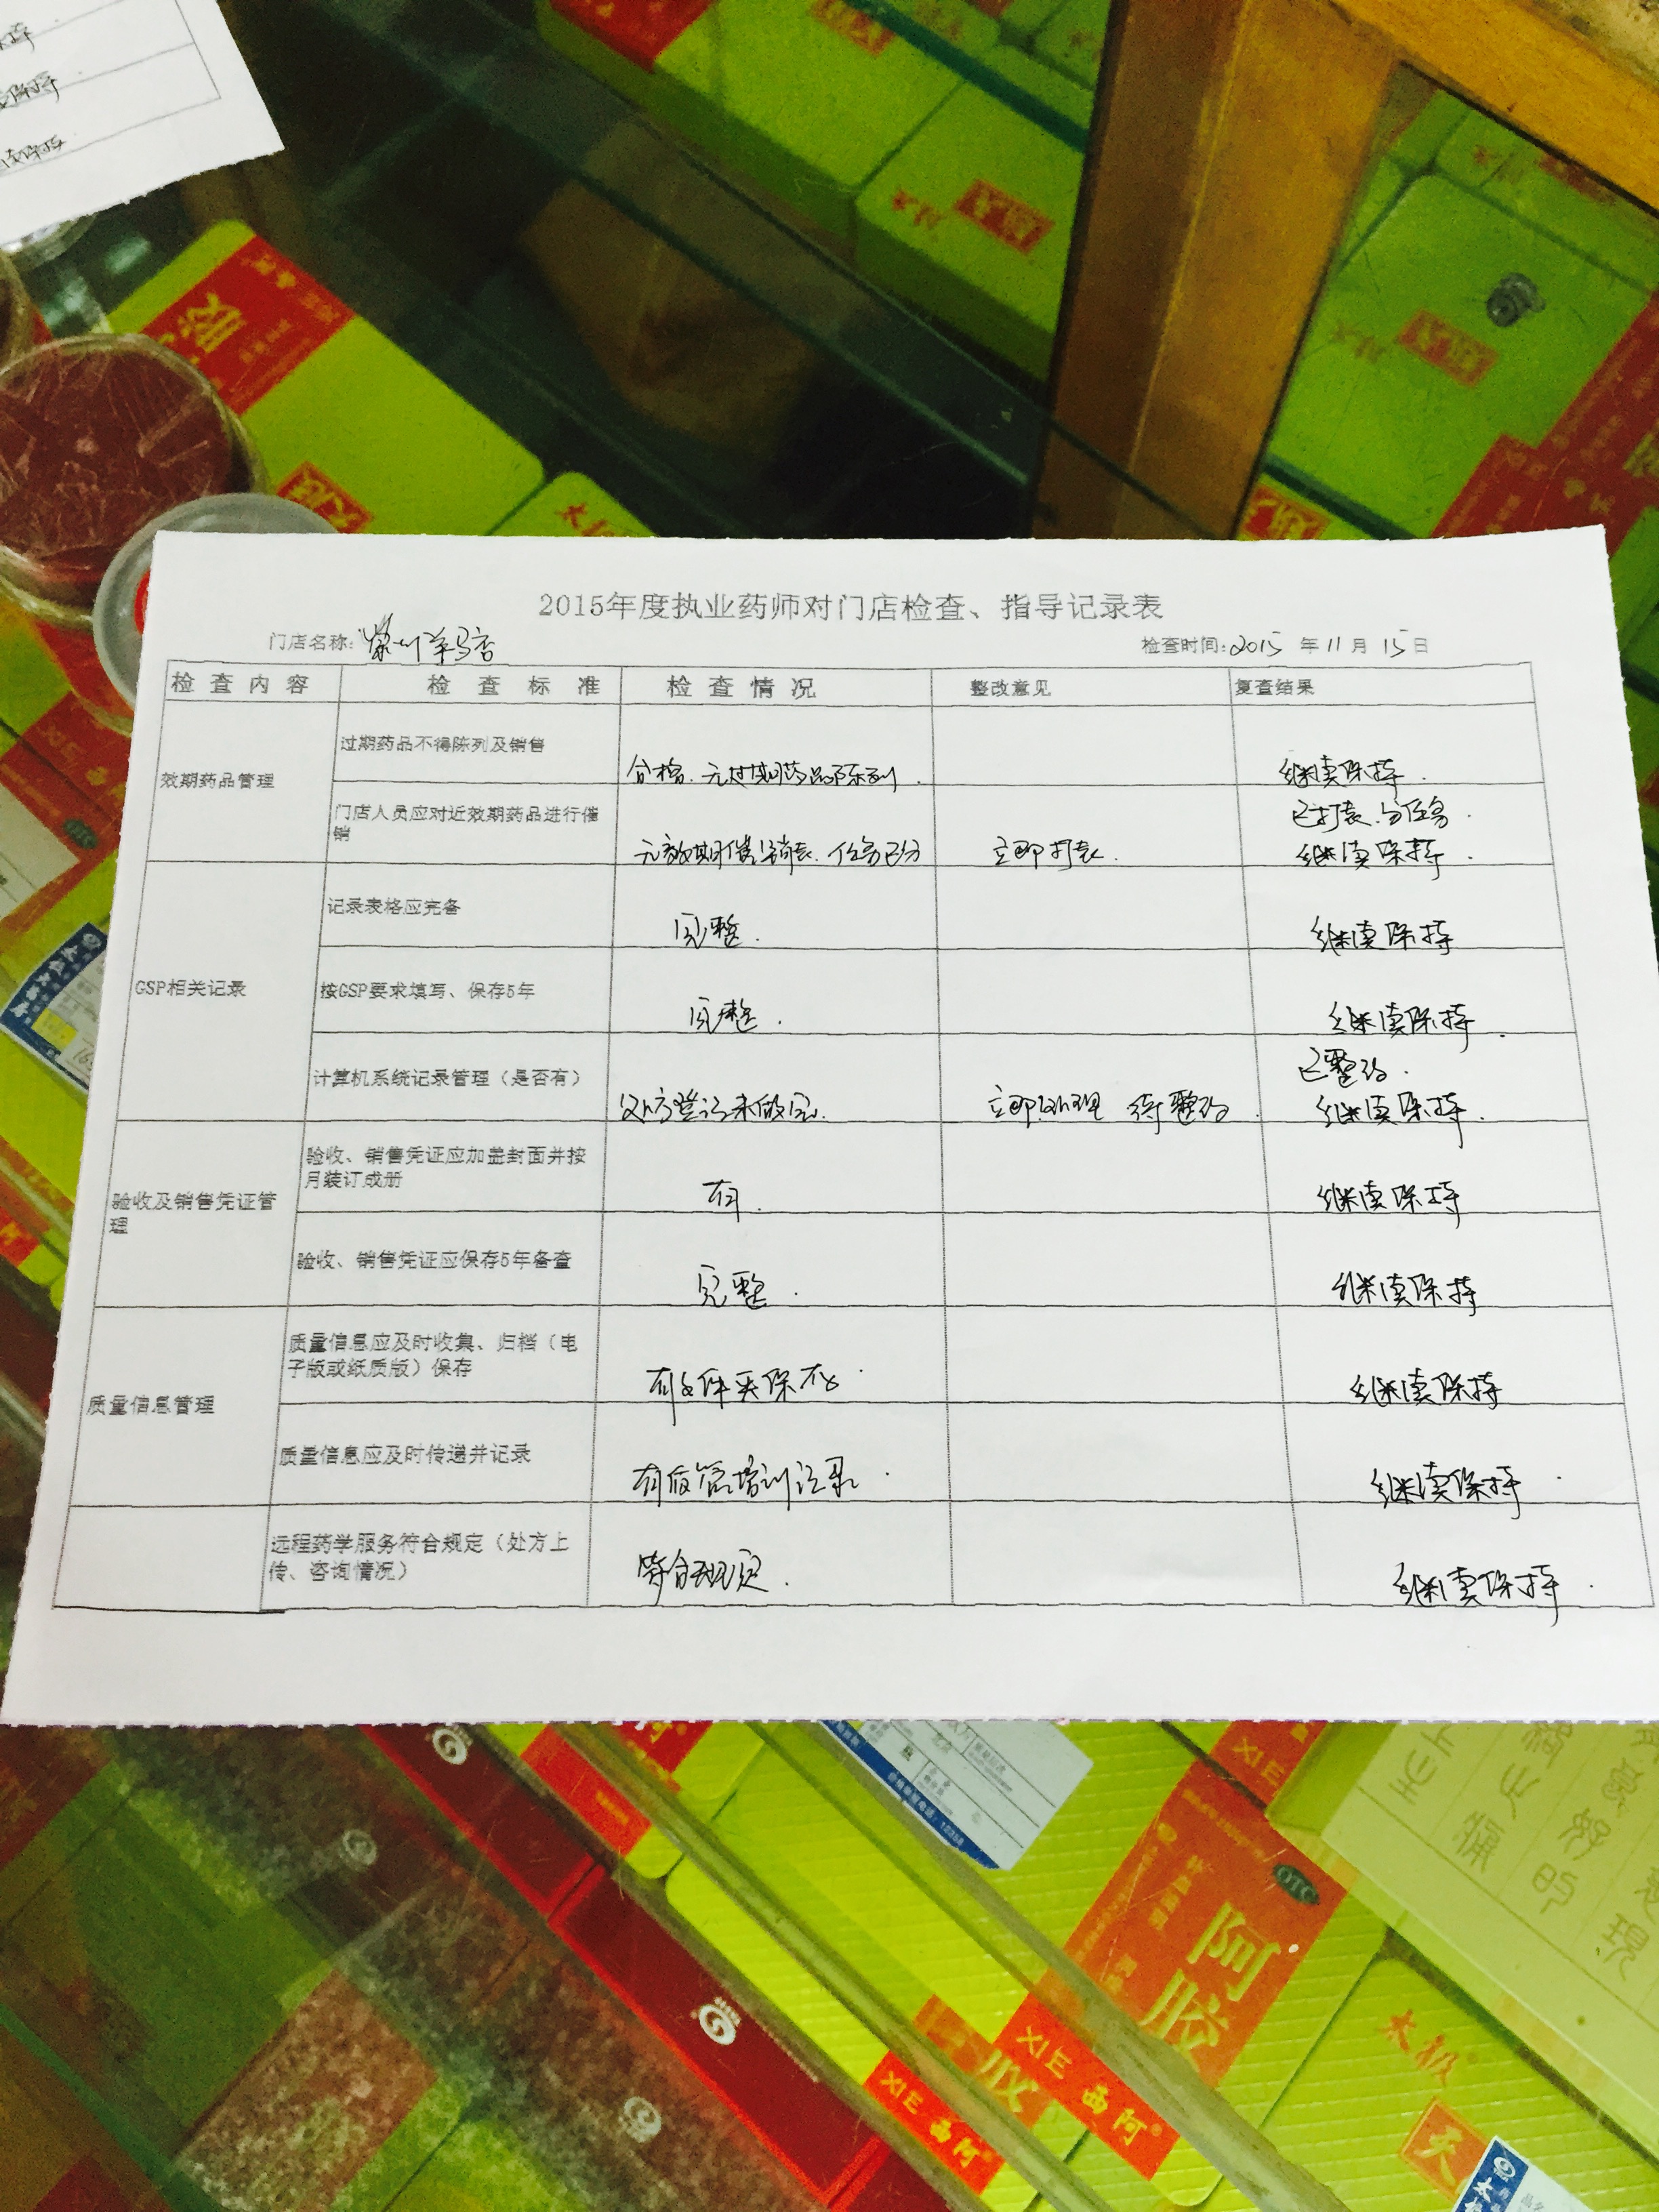 2015年度执业药师对门店检查、指导记录表
门店名称: 崇州羊马店 检查时间:2015 年 11 月 15 日
检查内容 检查标准 检查情况 整改意见 复查结果
效期药品管理
过期药品不得陈列及销售
合格.无过期药品陈列. 继续保持.
门店人员应对近效期药品进行催
销
无效期催销表.任务已分 立即打表.
已打表.分任务.
继续保持.
GSP相关记录
记录表格应完备
完整. 继续保持
按GSP要求填写、保存5年
完整. 继续保持.
计算机系统记录管理（是否有）
处方登记未做完. 立即处理 待整改.
已整改.
继续保持.
验收及销售凭证管
理
验收、销售凭证应加盖封面并按
月装订成册
有. 继续保持
验收、销售凭证应保存5年备查
完整. 继续保持
质量信息管理
质量信息应及时收集、归档（电
子版或纸质版）保存
有文件夹保存. 继续保持
质量信息应及时传递并记录
培训记录. 继续保持.
远程药学服务符合规定（处方上
传、咨询情况）
符合规定. 继续保持.
阿胶
OTC
XIE 西阿
XIE 西阿
太极
天